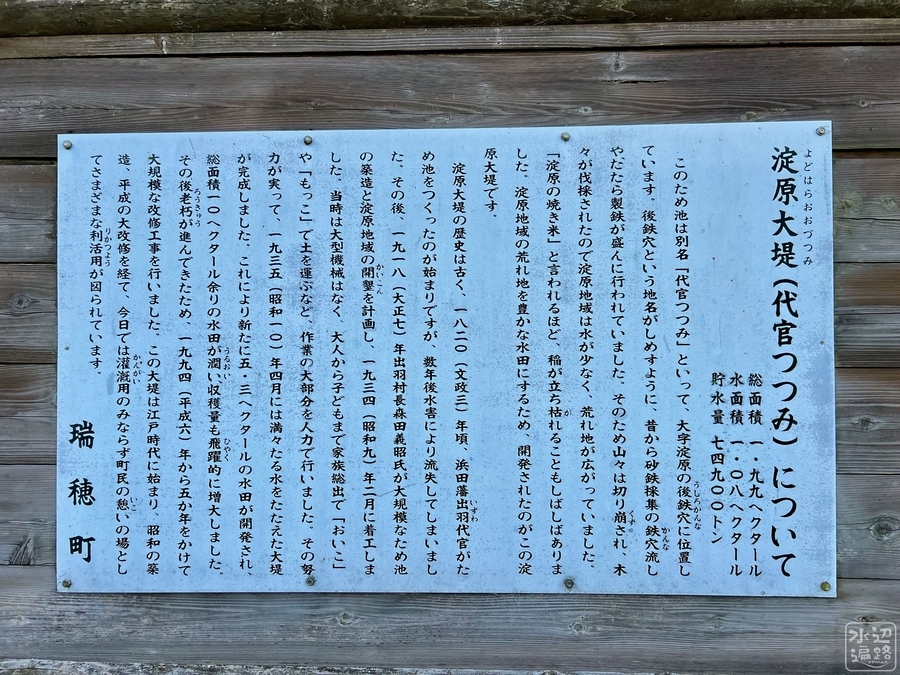 よどはらおおづつみ
淀原大堤(代官つつみ)について
総面積 一・九九ヘクタール
水面積 一・〇八ヘクタール
貯水量 七四九〇〇トン
このため池は別名「代官つつみ」といって、大字淀原の後鉄穴に位置し
ています。後鉄穴という地名がしめすように、昔から砂鉄採集の鉄穴流し
やたたら製鉄が盛んに行われていました。そのため山々は切り崩され、木
々が伐採されたので淀原地域は水が少なく、荒れ地が広がっていました。
「淀原の焼き米」と言われるほど、稲が立ち枯れることもしばしばありま
した。淀原地域の荒れ地を豊かな水田にするため、開発されたのがこの淀
原大堤です。
淀原大堤の歴史は古く、一八二〇(文政三)年頃、浜田藩出羽代官がた
め池をつくったのが始まりですが、数年後水害により流失してしまいまし
た。その後、一九一八(大正七)年出羽村長森田義昭氏が大規模なため池
の築造と淀原地域の開墾を計画し、一九三四(昭和九)年二月に着工しま
した。当時は大型機械はなく、大人から子どもまで家族総出で「おいこ」
や「もっこ」で土を運ぶなど、作業の大部分を人力で行いました。その努
力が実って、一九三五(昭和一〇)年四月には満々たる水をたたえた大堤
が完成しました。これにより新たに五・三ヘクタールの水田が開発され、
総面積一〇ヘクタール余りの水田が潤い収穫量も飛躍的に増大しました。
その後老朽が進んできたため、一九九四(平成六)年から五か年をかけて
大規模な改修工事を行いました。この大堤は江戸時代に始まり、昭和の築
造、平成の大改修を経て、今日では灌漑用のみならず町民の憩いの場とし
てさまざまな利活用が図られています。
瑞穂町
水辺遍路